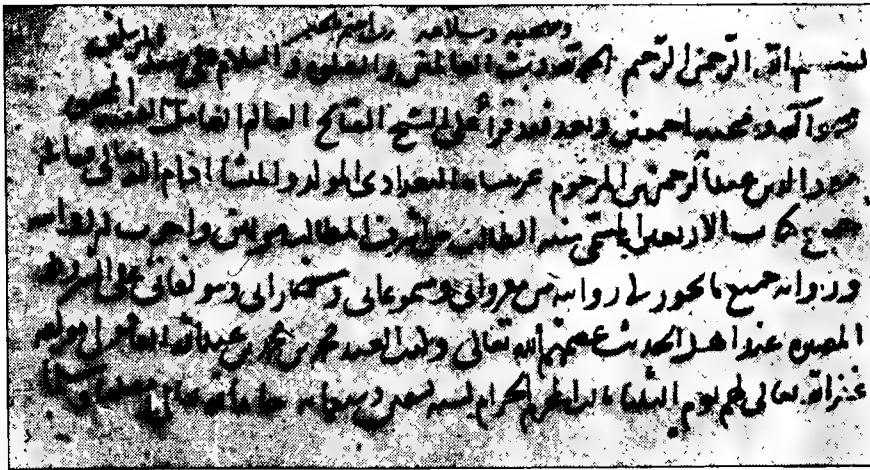 وصحبه وسلامه
بسم الله الرحمن الرحيم الحمد لله رب العالمين والصلوة والسلام على سيد المرسلين
محمد وآله وصحبه اجمعين وبعد فقد قرأ على الشيخ الصالح العالم الفاضل
نور الدين عبد الرحمن بن المرحوم عمر شاه البغدادى المولد والمنشأ ادام الله تعالى
جميع كتاب الأربعين المسمى منية الطالب من اشرف المطالب مرتين واجزت له
وروايه جميع ما يجوز لى روايته من مقروءاتى ومسموعاتى ومستجازاتى ومؤلفاتى على الشروط
المعتبره عند اهل الحديث عصمهم الله تعالى وكتب العبد محمد بن محمد بن عبد الله العاقولى
غفر الله تعالى لهم يوم الثلثا المحرم الحرام لسنه وسبعمائه حامدا لله تعالى